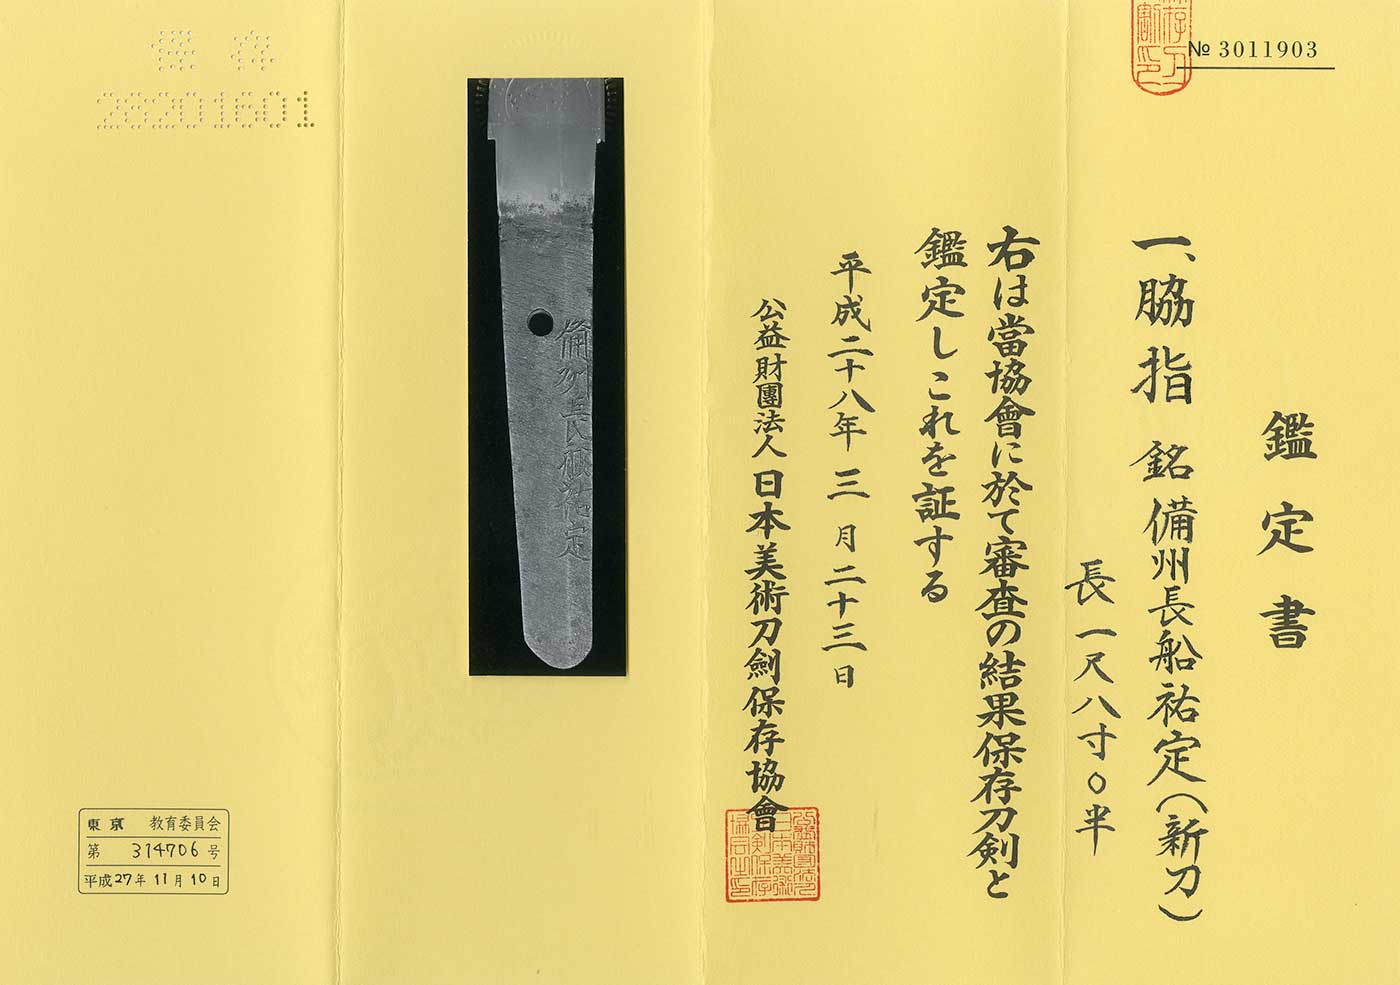 № 3011903
鑑定書
一、脇指 銘 備州長船祐定(新刀)
長一尺八寸〇半
右は當協會に於て審査の結果保存刀剣と
鑑定しこれを証する
平成二十八年三月二十三日
公益財團法人日本美術刀劍保存協會
備州長船祐定
保存
28201601
東京 教育委員会
第 314706 号
平成27年11月10日